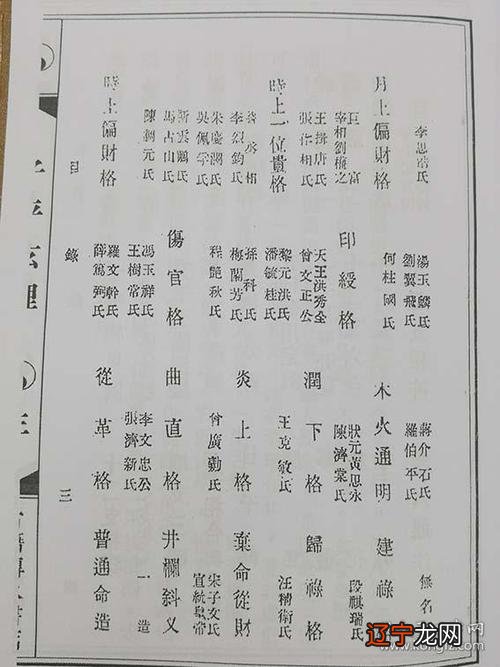 李思氏
湯玉麟氏
劉翼飛氏
蔣介石氏
羅伯平氏
無名
月上偏財格
何柱國氏
木火通明
建祿
巨富
宰相劉權之
印綬格
狀元黃思永
陳濟棠氏
段祺瑞氏
王揖唐氏
張作相氏
天王洪秀全
曾文正公
潤下格
歸祿格
時上一位貴格
黎元洪氏
潘毓桂氏
王克敏氏
汪精衛氏
李烈鈞氏
孫科氏
梅蘭芳氏
炎上格
棄命從財
朱慶瀾氏
吳佩孚氏
程艷秋氏
曾廣勷氏
宋子文氏
宣統皇帝
靳雲鵬氏
馬占山氏
傷官格
曲直格
井欄斜叉
陳調元氏
馮玉祥氏
王樹常氏
李文忠公
張濟新氏
一造
時上偏財格
羅文幹氏
薛篤弼氏
從革格
普通命造
目錄
三
子平玄理
辽宁龙网